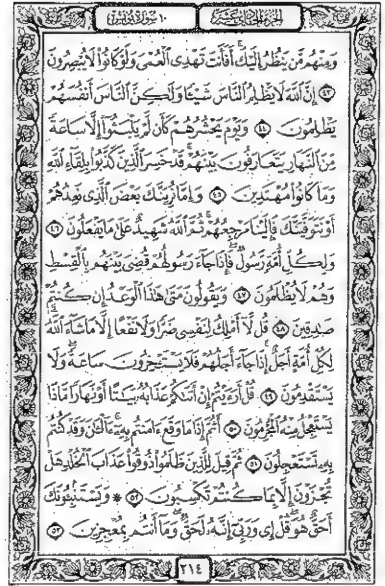 الجزء الحادي عشر ١٠ سورة يونس
وَمِنْهُم مَّن يَنظُرُ إِلَيْكَ أَفَأَنتَ تَهْدِي الْعُمْيَ وَلَوْ كَانُوا لَا يُبْصِرُونَ
٤٣ إِنَّ اللَّهَ لَا يَظْلِمُ النَّاسَ شَيْئًا وَلَٰكِنَّ النَّاسَ أَنفُسَهُمْ
يَظْلِمُونَ ٤٤ وَيَوْمَ يَحْشُرُهُمْ كَأَن لَّمْ يَلْبَثُوا إِلَّا سَاعَةً
مِّنَ النَّهَارِ يَتَعَارَفُونَ بَيْنَهُمْ قَدْ خَسِرَ الَّذِينَ كَذَّبُوا بِلِقَاءِ اللَّهِ
وَمَا كَانُوا مُهْتَدِينَ ٤٥ وَإِمَّا نُرِيَنَّكَ بَعْضَ الَّذِي نَعِدُهُمْ
أَوْ نَتَوَفَّيَنَّكَ فَإِلَيْنَا مَرْجِعُهُمْ ثُمَّ اللَّهُ شَهِيدٌ عَلَىٰ مَا يَفْعَلُونَ ٤٦
وَلِكُلِّ أُمَّةٍ رَّسُولٌ فَإِذَا جَاءَ رَسُولُهُمْ قُضِيَ بَيْنَهُم بِالْقِسْطِ
وَهُمْ لَا يُظْلَمُونَ ٤٧ وَيَقُولُونَ مَتَىٰ هَٰذَا الْوَعْدُ إِن كُنتُمْ
صَادِقِينَ ٤٨ قُل لَّا أَمْلِكُ لِنَفْسِي ضَرًّا وَلَا نَفْعًا إِلَّا مَا شَاءَ اللَّهُ
لِكُلِّ أُمَّةٍ أَجَلٌ إِذَا جَاءَ أَجَلُهُمْ فَلَا يَسْتَأْخِرُونَ سَاعَةً وَلَا
يَسْتَقْدِمُونَ ٤٩ قُلْ أَرَأَيْتُمْ إِنْ أَتَاكُمْ عَذَابُهُ بَيَاتًا أَوْ نَهَارًا مَّاذَا
يَسْتَعْجِلُ مِنْهُ الْمُجْرِمُونَ ٥٠ أَثُمَّ إِذَا مَا وَقَعَ آمَنتُم بِهِ آلْآنَ وَقَدْ كُنتُم
بِهِ تَسْتَعْجِلُونَ ٥١ ثُمَّ قِيلَ لِلَّذِينَ ظَلَمُوا ذُوقُوا عَذَابَ الْخُلْدِ هَلْ
تُجْزَوْنَ إِلَّا بِمَا كُنتُمْ تَكْسِبُونَ ٥٢ ۞ وَيَسْتَنبِئُونَكَ
أَحَقٌّ هُوَ قُلْ إِي وَرَبِّي إِنَّهُ لَحَقٌّ وَمَا أَنتُم بِمُعْجِزِينَ ٥٣
٢١٤